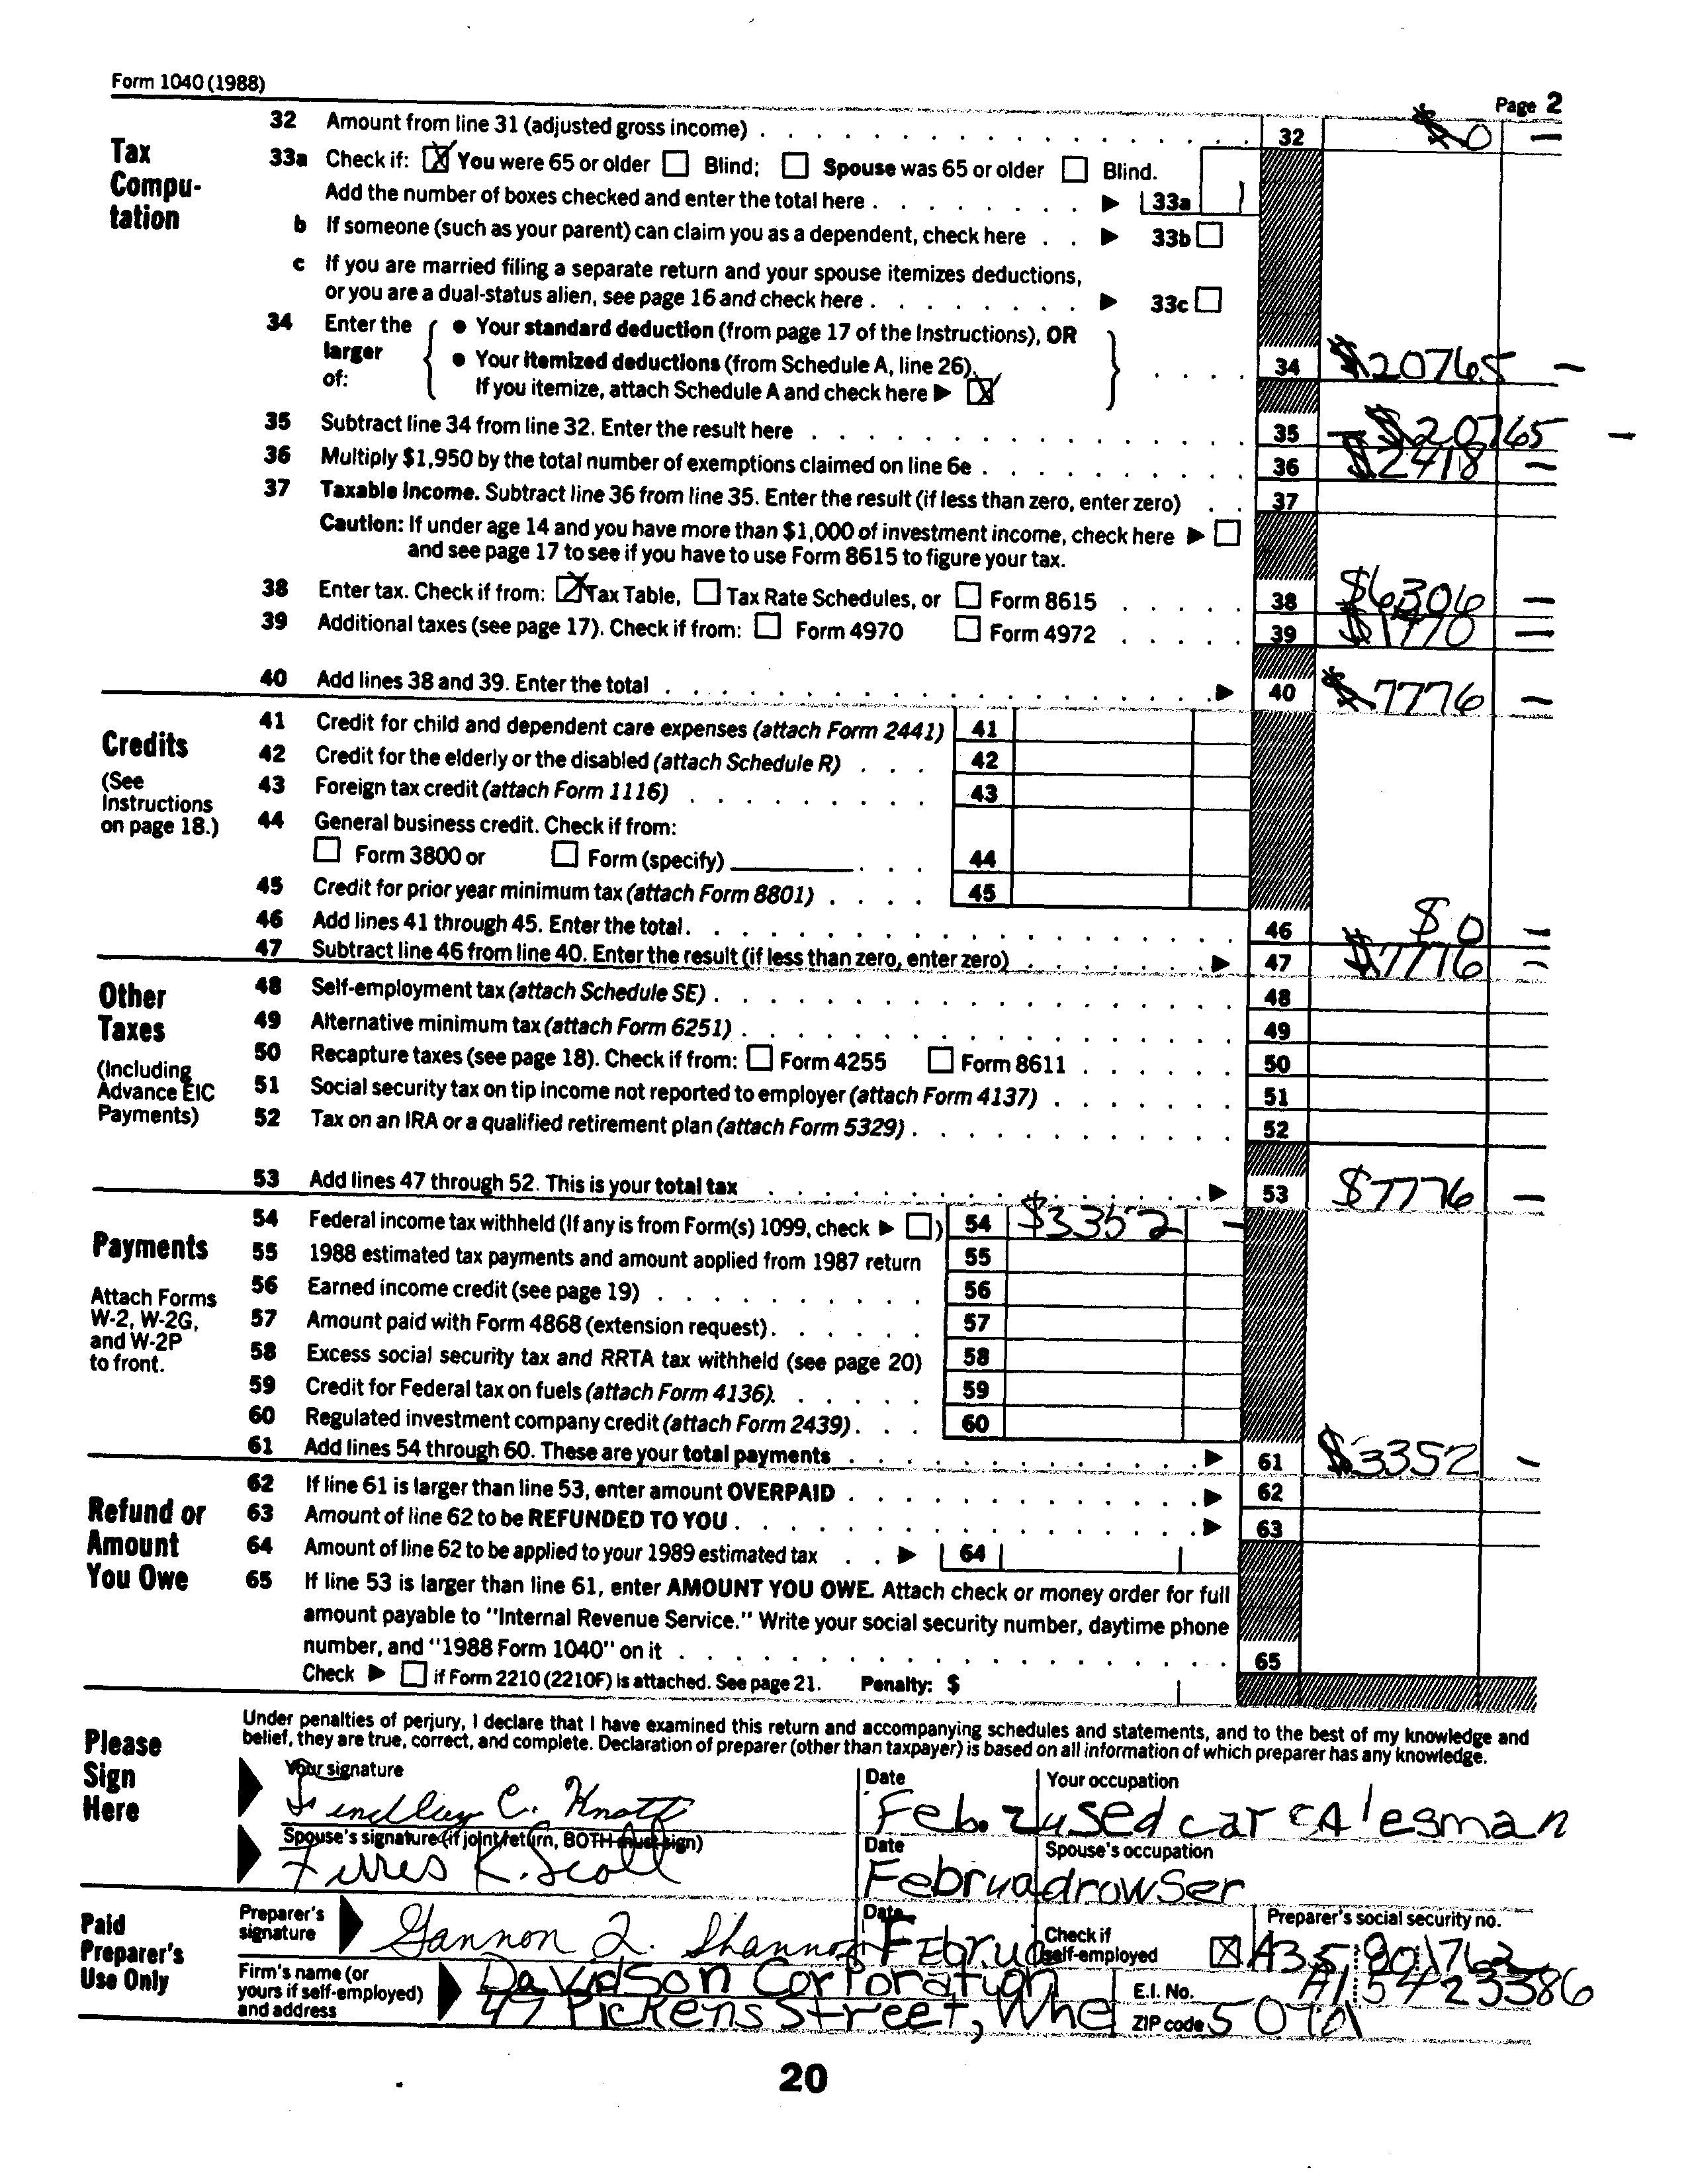 Form 1040 (1988)
Page 2
Tax Compu-tation
32 Amount from line 31 (adjusted gross income) 32 $0 —
33a Check if: [X] You were 65 or older [ ] Blind; [ ] Spouse was 65 or older [ ] Blind.
Add the number of boxes checked and enter the total here ▶ 33a 1
b If someone (such as your parent) can claim you as a dependent, check here ▶ 33b [ ]
c If you are married filing a separate return and your spouse itemizes deductions,
or you are a dual-status alien, see page 16 and check here ▶ 33c [ ]
34 Enter the larger of: { ● Your standard deduction (from page 17 of the Instructions), OR
● Your itemized deductions (from Schedule A, line 26).
If you itemize, attach Schedule A and check here ▶ [X] } 34 $20765 —
35 Subtract line 34 from line 32. Enter the result here 35 -$20765 —
36 Multiply $1,950 by the total number of exemptions claimed on line 6e 36 $2418 —
37 Taxable income. Subtract line 36 from line 35. Enter the result (if less than zero, enter zero) 37
Caution: If under age 14 and you have more than $1,000 of investment income, check here ▶ [ ]
and see page 17 to see if you have to use Form 8615 to figure your tax.
38 Enter tax. Check if from: [X] Tax Table, [ ] Tax Rate Schedules, or [ ] Form 8615 38 $6306 —
39 Additional taxes (see page 17). Check if from: [ ] Form 4970 [ ] Form 4972 39 $1470 —
40 Add lines 38 and 39. Enter the total ▶ 40 $7776 —
Credits
(See Instructions on page 18.)
41 Credit for child and dependent care expenses (attach Form 2441) 41
42 Credit for the elderly or the disabled (attach Schedule R) 42
43 Foreign tax credit (attach Form 1116) 43
44 General business credit. Check if from:
[ ] Form 3800 or [ ] Form (specify) 44
45 Credit for prior year minimum tax (attach Form 8801) 45
46 Add lines 41 through 45. Enter the total. 46 $0 —
47 Subtract line 46 from line 40. Enter the result (if less than zero, enter zero) ▶ 47 $7776 —
Other Taxes
(Including Advance EIC Payments)
48 Self-employment tax (attach Schedule SE) 48
49 Alternative minimum tax (attach Form 6251) 49
50 Recapture taxes (see page 18). Check if from: [ ] Form 4255 [ ] Form 8611 50
51 Social security tax on tip income not reported to employer (attach Form 4137) 51
52 Tax on an IRA or a qualified retirement plan (attach Form 5329) 52
53 Add lines 47 through 52. This is your total tax ▶ 53 $7776 —
Payments
Attach Forms W-2, W-2G, and W-2P to front.
54 Federal income tax withheld (If any is from Form(s) 1099, check ▶ [ ]) 54 $3352 —
55 1988 estimated tax payments and amount applied from 1987 return 55
56 Earned income credit (see page 19) 56
57 Amount paid with Form 4868 (extension request) 57
58 Excess social security tax and RRTA tax withheld (see page 20) 58
59 Credit for Federal tax on fuels (attach Form 4136) 59
60 Regulated investment company credit (attach Form 2439) 60
61 Add lines 54 through 60. These are your total payments ▶ 61 $3352 —
Refund or Amount You Owe
62 If line 61 is larger than line 53, enter amount OVERPAID ▶ 62
63 Amount of line 62 to be REFUNDED TO YOU ▶ 63
64 Amount of line 62 to be applied to your 1989 estimated tax ▶ 64
65 If line 53 is larger than line 61, enter AMOUNT YOU OWE. Attach check or money order for full
amount payable to "Internal Revenue Service." Write your social security number, daytime phone
number, and "1988 Form 1040" on it 65
Check ▶ [ ] if Form 2210 (2210F) is attached. See page 21. Penalty: $
Please Sign Here
Under penalties of perjury, I declare that I have examined this return and accompanying schedules and statements, and to the best of my knowledge and
belief, they are true, correct, and complete. Declaration of preparer (other than taxpayer) is based on all information of which preparer has any knowledge.
Your signature Date Your occupation
Findlay C. Knott Feb. 2 used car sAlesman
Spouse's signature (if joint return, BOTH must sign) Date Spouse's occupation
Ferres K. Scott Februa drowser
Paid Preparer's Use Only
Preparer's signature Date Check if self-employed [X] Preparer's social security no.
Gannon Q. Shanno Februa A35 80 1762
Firm's name (or yours if self-employed) and address
Davidson Corporation E.I. No. A1 5423386
47 Pickens Street, Whe ZIP code
20